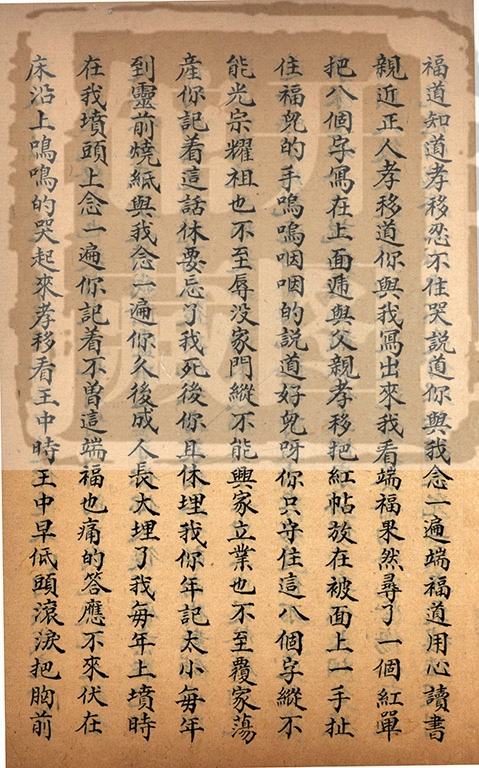 福道知道孝移忍不住哭説道你與我念一遍端福道用心讀書
親近正人孝移道你與我寫出來我看端福果然尋了一個紅單
把八個字寫在上面遞與父親孝移把紅帖放在被面上一手扯
住福兒的手嗚嗚咽咽的説道好兒呀你只守住這八個字縱不
能光宗耀祖也不至辱没家門縱不能興家立業也不至覆家蕩
産你記着這話休要忘了我死後你且休埋我你年記太小每年
到靈前燒紙與我念一遍你久後成人長大埋了我每年上墳時
在我墳頭上念一遍你記着不曽這端福也痛的答應不來伏在
床沿上嗚嗚的哭起來孝移看王中時王中早低頭滾淚把胸前